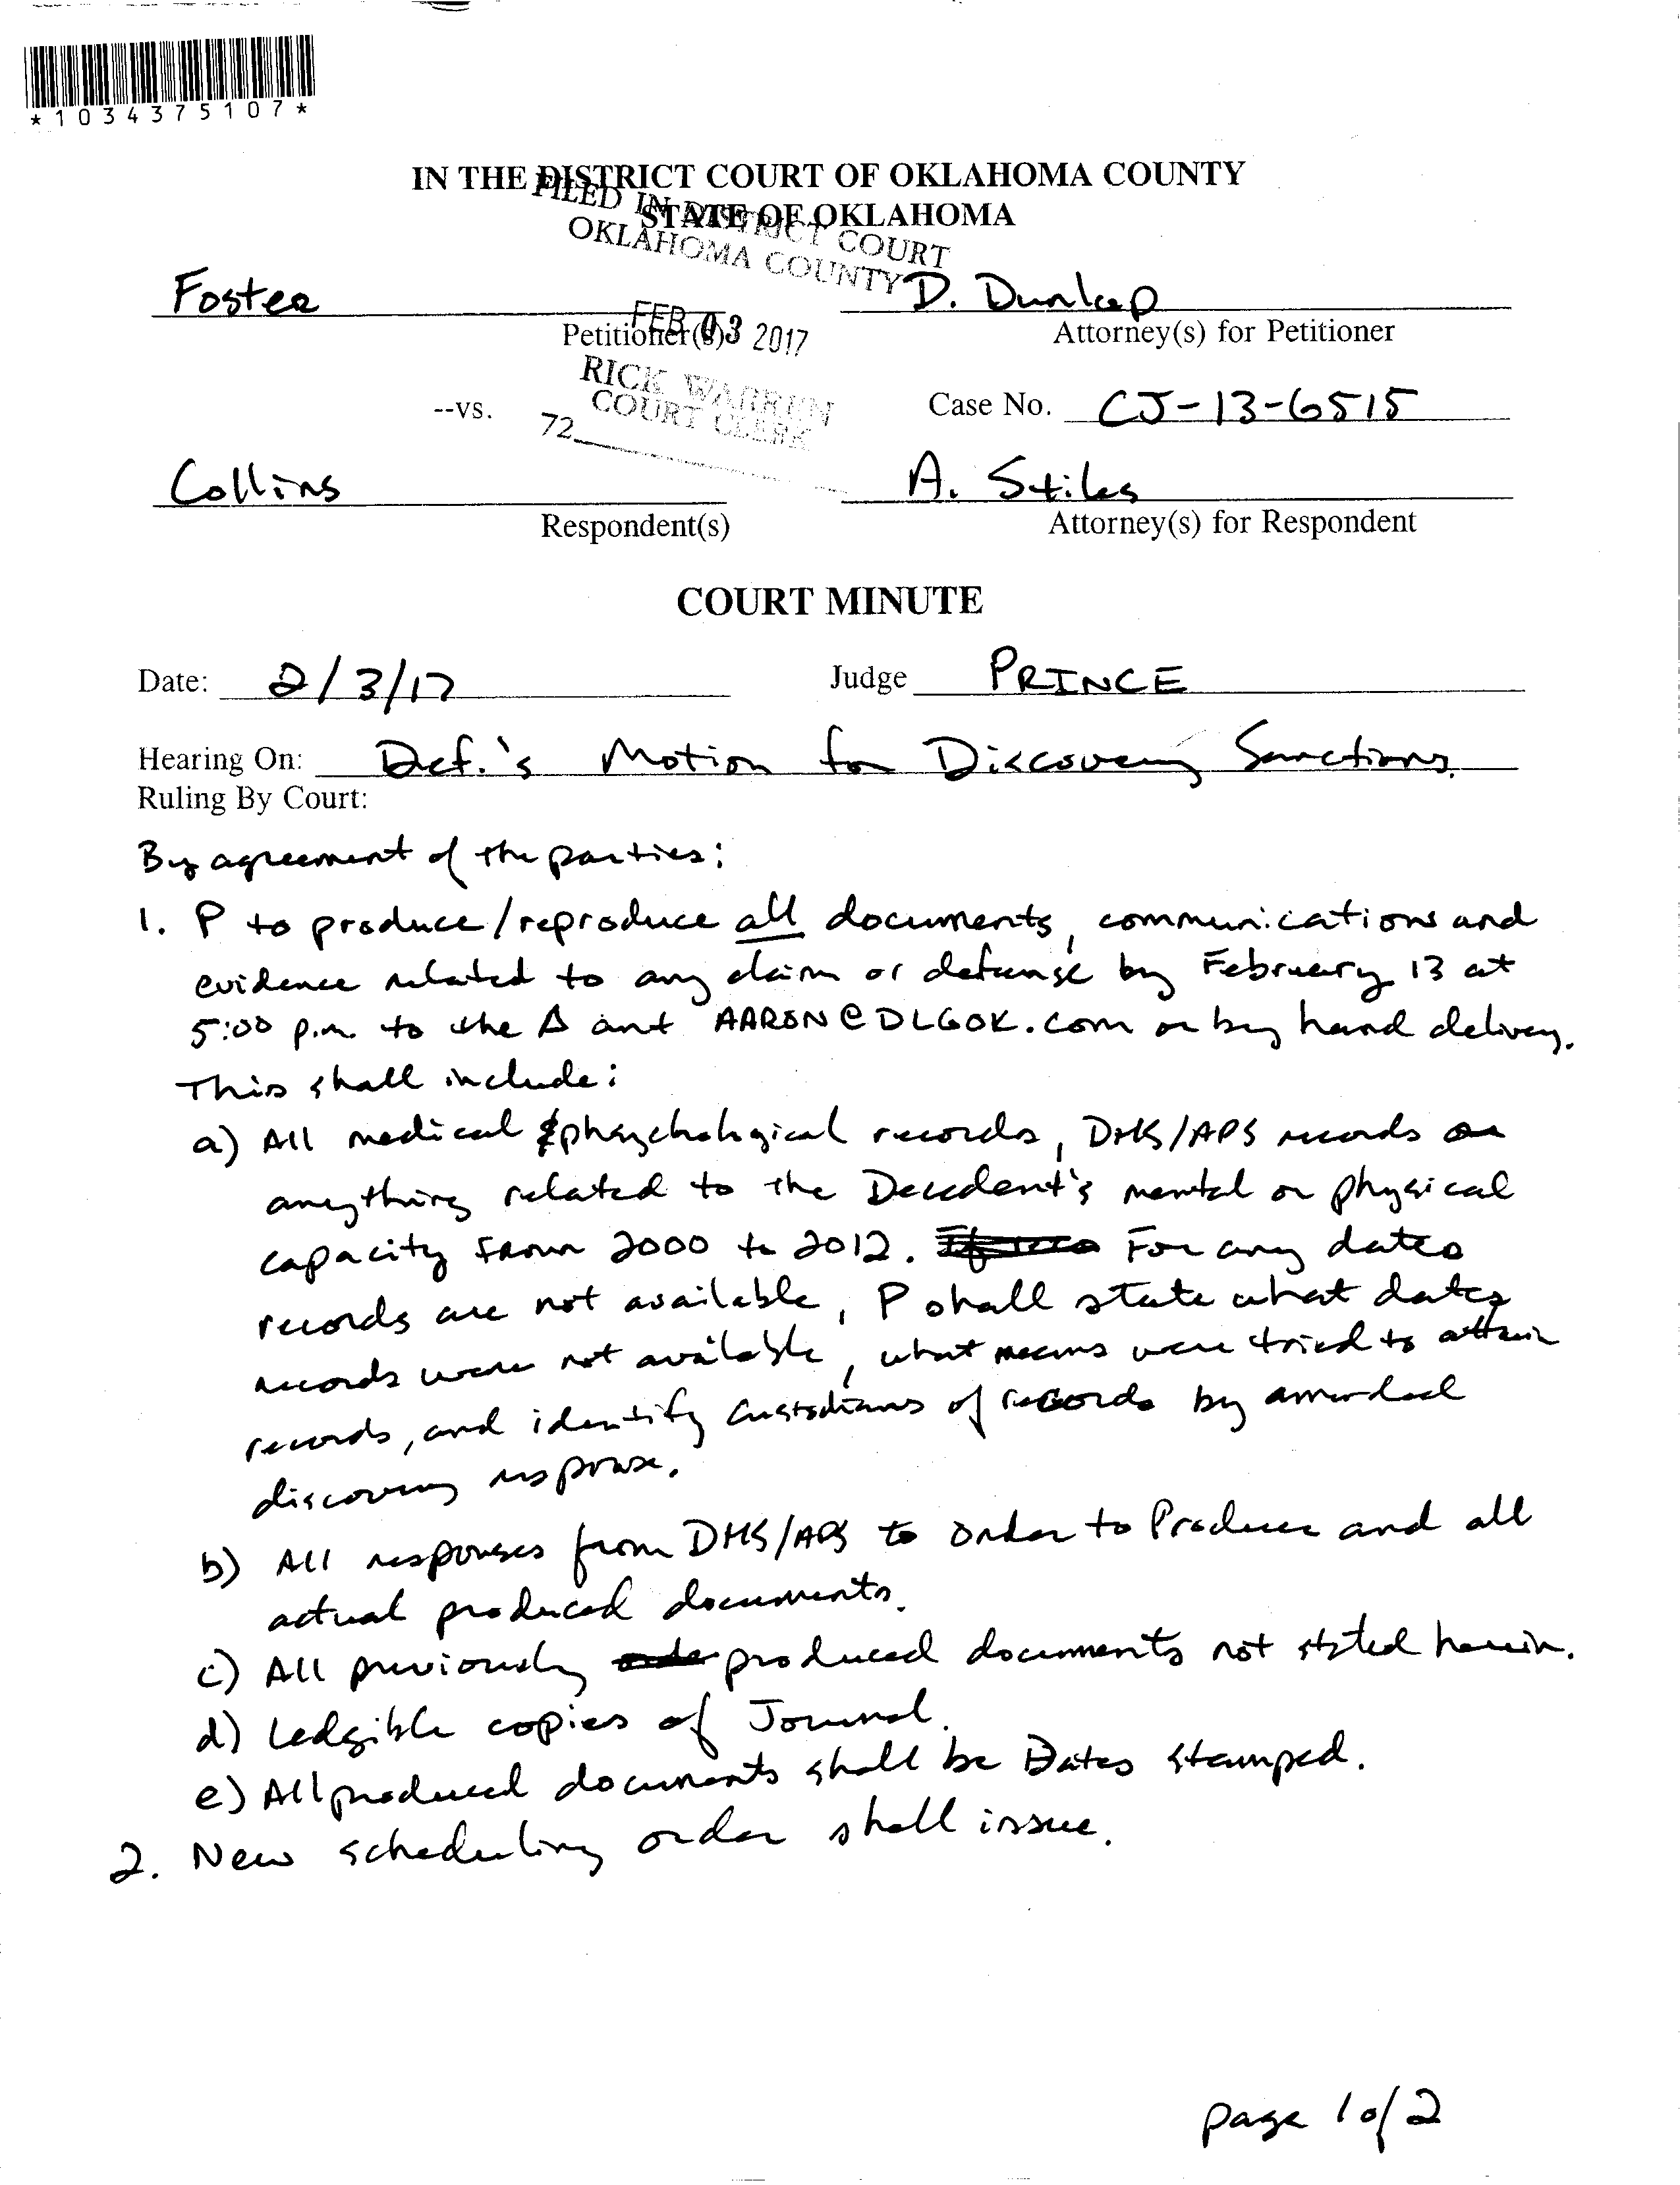 *1034375107*
IN THE DISTRICT COURT OF OKLAHOMA COUNTY
STATE OF OKLAHOMA
FILED IN DISTRICT COURT
OKLAHOMA COUNTY
Foster
D. Dunlap
Petitioner(s)
Attorney(s) for Petitioner
FEB 03 2017
RICK WARREN
COURT CLERK
72
--vs.
Case No. CJ-13-6515
Collins
A. Stiles
Respondent(s)
Attorney(s) for Respondent
COURT MINUTE
Date: 2/3/17
Judge PRINCE
Hearing On: Def.'s Motion for Discovery Sanctions.
Ruling By Court:
By agreement of the parties:
1. P to produce/reproduce all documents, communications and
evidence related to any claim or defense by February 13 at
5:00 p.m. to the Δ ant AARON@DLGOK.com or by hand delivery.
This shall include:
a) All medical & phsychological records, DHS/APS records or
anything related to the Decedent's mental or physical
capacity from 2000 to 2012. For any dates
records are not available, P shall state what dates
records were not available, what means were tried to attain
records, and identify custodians of records by amended
discovery response.
b) All responses from DHS/APS to Order to Produce and all
actual produced documents.
c) All previously produced documents not stated herein.
d) Ledgible copies of Journal.
e) All produced documents shall be Bates stamped.
2. New scheduling order shall issue.
page 1 of 2